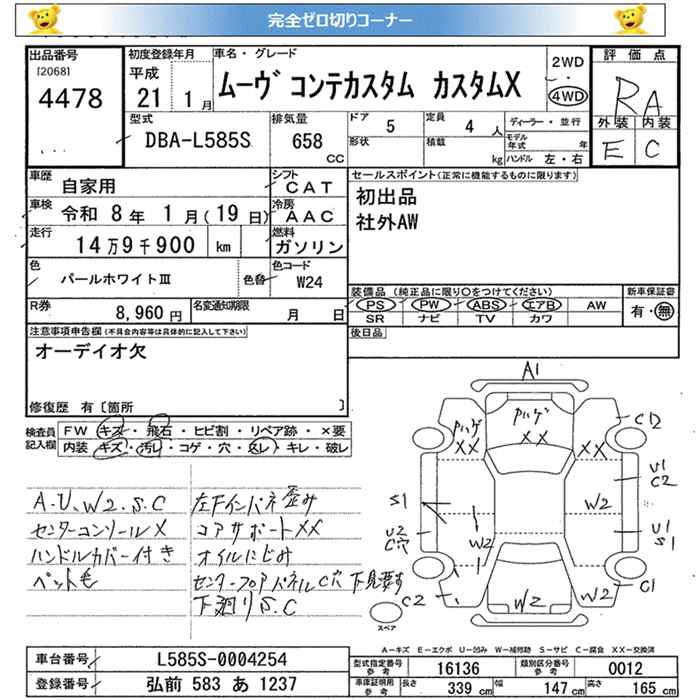 完全ゼロ切りコーナー
出品番号
[2068]
4478
初度登録年月
平成
21 年 1 月
車名・グレード
ムーヴ コンテカスタム カスタムX
2WD
・
4WD
評価点
RA
外装 内装
E C
型式
DBA-L585S
排気量
658
CC
ドア 5
形状
定員 4 人
積載 kg
ディーラー・並行
モデル年式 年
ハンドル 左・右
車歴
自家用
シフト
CAT
車検
令和 8 年 1 月(19 日)
冷房
AAC
走行
14 万 9 千 900 km
燃料
ガソリン
色
パールホワイトⅢ
色替
色コード
W24
R券
8,960 円
名変通知期限
月 日
セールスポイント(正常に機能するものに限ります)
初出品
社外AW
装備品 (純正品に限り○をつけてください)
PS PW ABS エアB AW
SR ナビ TV カワ
新車保証書
有・無
後日品
注意事項申告欄(不具合内容等は具体的に記入して下さい)
オーデイオ欠
修復歴 有 [箇所 ]
検査員記入欄
FW キズ・飛石・ヒビ割・リペア跡・×要
内装 キズ・汚レ・コゲ・穴・スレ・キレ・破レ
A.U.W2.S.C
センターコンソールX
ハンドルカバー付き
ペット毛
左下インパネ歪み
コアサポートXX
オイルにじみ
センターフロアパネルC穴 下見要す
下廻りS.C
A1
Pハゲ
XX
Pハゲ
XX
XX
C2
U1
C2
S1
W2
U2
C穴
W2
U1
S1
C2
W2
W2
C1
スペア
A-キズ E-エクボ U-凹み W-補修跡 S-サビ C-腐食 XX-交換済
車台番号
L585S-0004254
登録番号
弘前 583 あ 1237
型式指定番号
参考
16136
類別区分番号
参考
0012
車庫証明用
参考
長さ 339 cm
幅 147 cm
高さ 165 cm